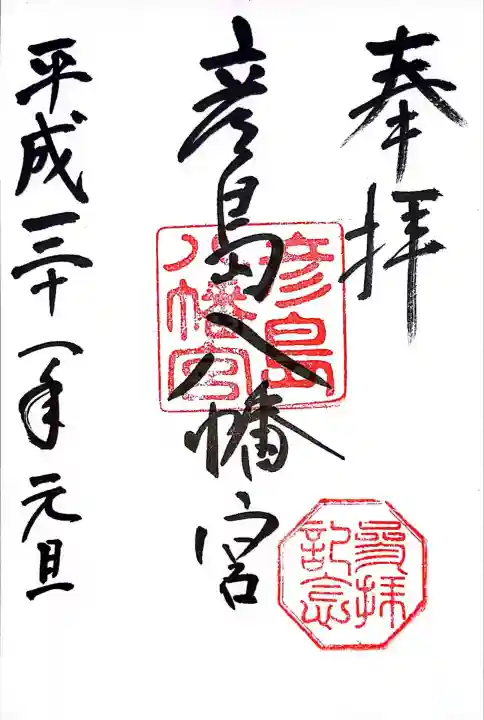 奉拝
彦島八幡宮
彦島
八幡宮
参拝
記念
平成三十一年元旦